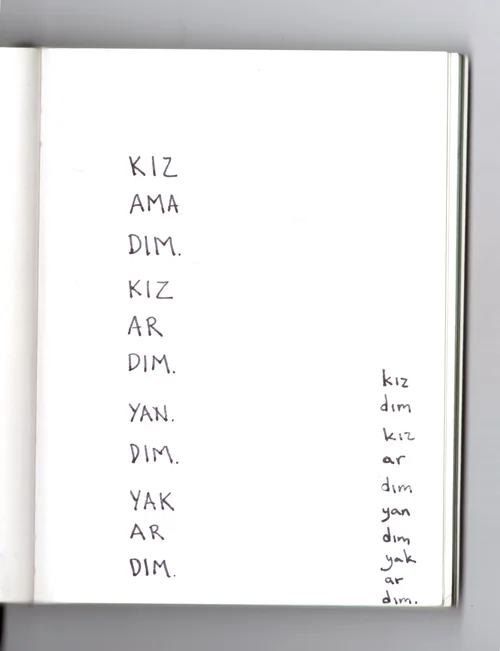 KIZ
AMA
DIM.
KIZ
AR
DIM.
YAN.
DIM.
YAK
AR
DIM.
kız
dım
kız
ar
dım
yan
dım
yak
ar
dım.